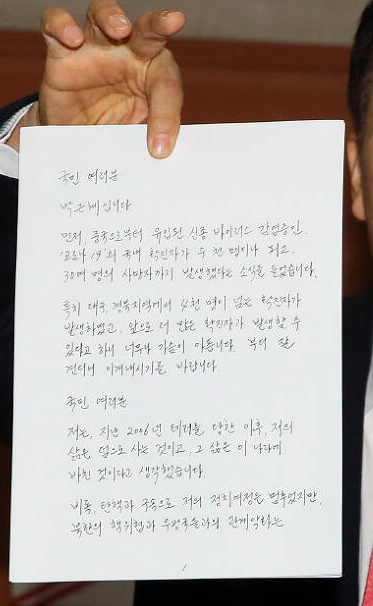 국민 여러분
박근혜입니다
먼저, 중국으로부터 유입된 신종 바이러스 감염증인
'코로나 19'의 국내 확진자가 수 천 명이나 되고
30여 명의 사망자까지 발생했다는 소식을 들었습니다.
특히 대구, 경북지역에서 4천 명이 넘는 확진자가
발생하였고, 앞으로 더 많은 확진자가 발생할 수
있다고 하니 너무나 가슴이 아픕니다. 부디 잘
견디어 이겨내시기를, 바랍니다.
국민 여러분
저는, 지난 2006년 테러를 당한 이후, 저의
삶은 덤으로 사는 것이고, 그 삶은 이 나라에
바친 것이라고 생각했습니다.
비록, 탄핵과 구속으로 저의 정치여정은 멈추었지만,
북한의 핵위협과 우방국들과의 관계악화는
1